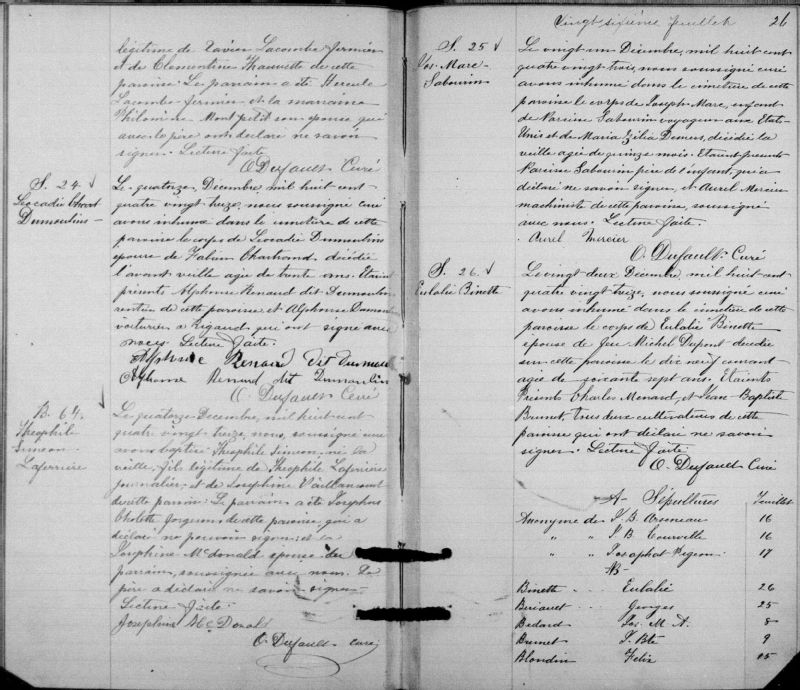 légitime de Xavier Lacombe fermier
et de Clémentine Chauvette de cette
paroisse. Le parrain a été Hercule
Lacombe fermier et la marraine
Philomène Montpetit son épouse qui
avec le père ont déclaré ne savoir
signer. Lecture faite
O. Dufault Curé
S. 24.
Léocadie
Dumoulins
Le quatorze Décembre, mil huit cent
quatre vingt treize, nous soussigné curé
avons inhumé dans le cimetière de cette
paroisse le corps de Léocadie Dumoulins
épouse de Fabien Chartrand, décédée
l'avant veille agée de trente ans. Etaient
présents Alphonse Renaud dit Dumoulin
rentier de cette paroisse et Alphonse
voiturier à Rigaud, qui ont signé avec
nous. Lecture faite.
Alphonse Renaud dit
Alphonse Renaud dit Dumoulin
O. Dufault Curé
B. 64.
Théophile
Simeon
Laferrière
Le quatorze Décembre, mil huit cent
quatre vingt treize, nous, soussigné curé
avons baptisé Théophile Simeon, né la
veille, fils légitime de Théophile Laferrière
journalier et de Josephine Vaillancourt
de cette paroisse. Le parrain a été Josephus
Cholette forgeron de cette paroisse, qui a
déclaré ne pouvoir signer et la
Josephine McDonald épouse du
parrain, soussignée avec nous. Le
père a déclaré ne savoir signer
Lecture faite.
Josephine McDonald
O. Dufault curé
Vingt sixième feuillet 26
S. 25
Jos. Marc
Sabourin
Le vingt un Décembre, mil huit cent
quatre vingt treize, nous soussigné curé
avons inhumé dans le cimetière de cette
paroisse le corps de Joseph Marc, enfant
de Narcisse Sabourin voyageur aux Etats
Unis et de Maria Zélia Demers, décédé la
veille agé de quinze mois. Etaient présents
Narcisse Sabourin père de l'enfant, qui a
déclaré ne savoir signer, et Aurel Mercier
machiniste de cette paroisse, soussigné
avec nous. Lecture faite.
Aurel Mercier
O. Dufault Curé
S. 26.
Eulalie Binette
Le vingt deux Décembre, mil huit cent
quatre vingt treize, nous soussigné curé
avons inhumé dans le cimetière de cette
paroisse le corps de Eulalie Binette
épouse de feu Michel Dupont décédée
en cette paroisse le dix neuf courant
agée de soixante sept ans. Etaients
Présents Charles Menard, et Jean-Baptiste
Brunet, tous deux cultivateurs de cette
paroisse qui ont déclaré ne savoir
signer. Lecture faite
O. Dufault Curé
A- Sépultures Feuillet
Anonyme de J. B. Arseneau 16
" " J. B. Courville 16
" " Josaphat Pigeon 17
B-
Binette Eulalie 26
Beriault Georges 25
Bedard Jos. M. A. 8
Brunet J. Bte 9
Blondin Felix 15